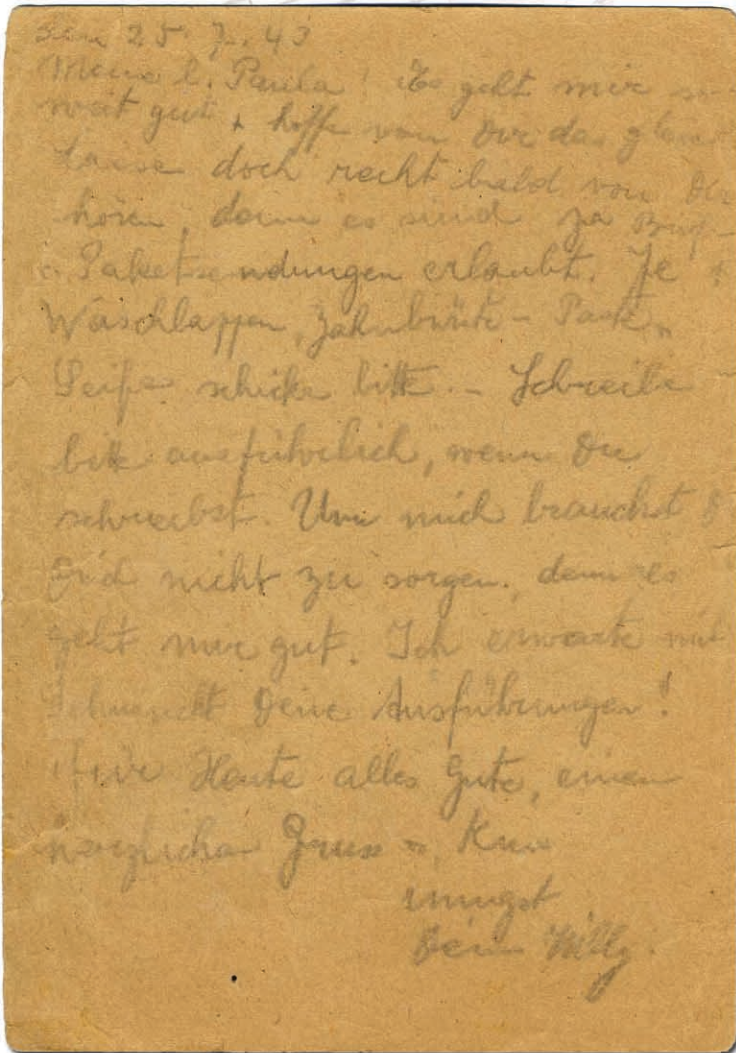 den 25. 7. 43
Meine l. Paula! Es geht mir so-
weit gut + hoffe von Dir das gleiche
Lasse doch recht bald von Dir
hören, denn es sind ja Brief-
u. Paketsendungen erlaubt. Je
Waschlappen, Zahnbürste - Paste,
Seife schicke bitte. - Schreibe
bitte ausführlich, wenn Du
schreibst. Um mich brauchst
Dich nicht zu sorgen, denn es
geht mir gut. Ich erwarte mit
Sehnsucht Deine Ausführungen!
Für Heute alles Gute, einen
herzlichen Gruss u. Kuss
innigst
Dein Willy.